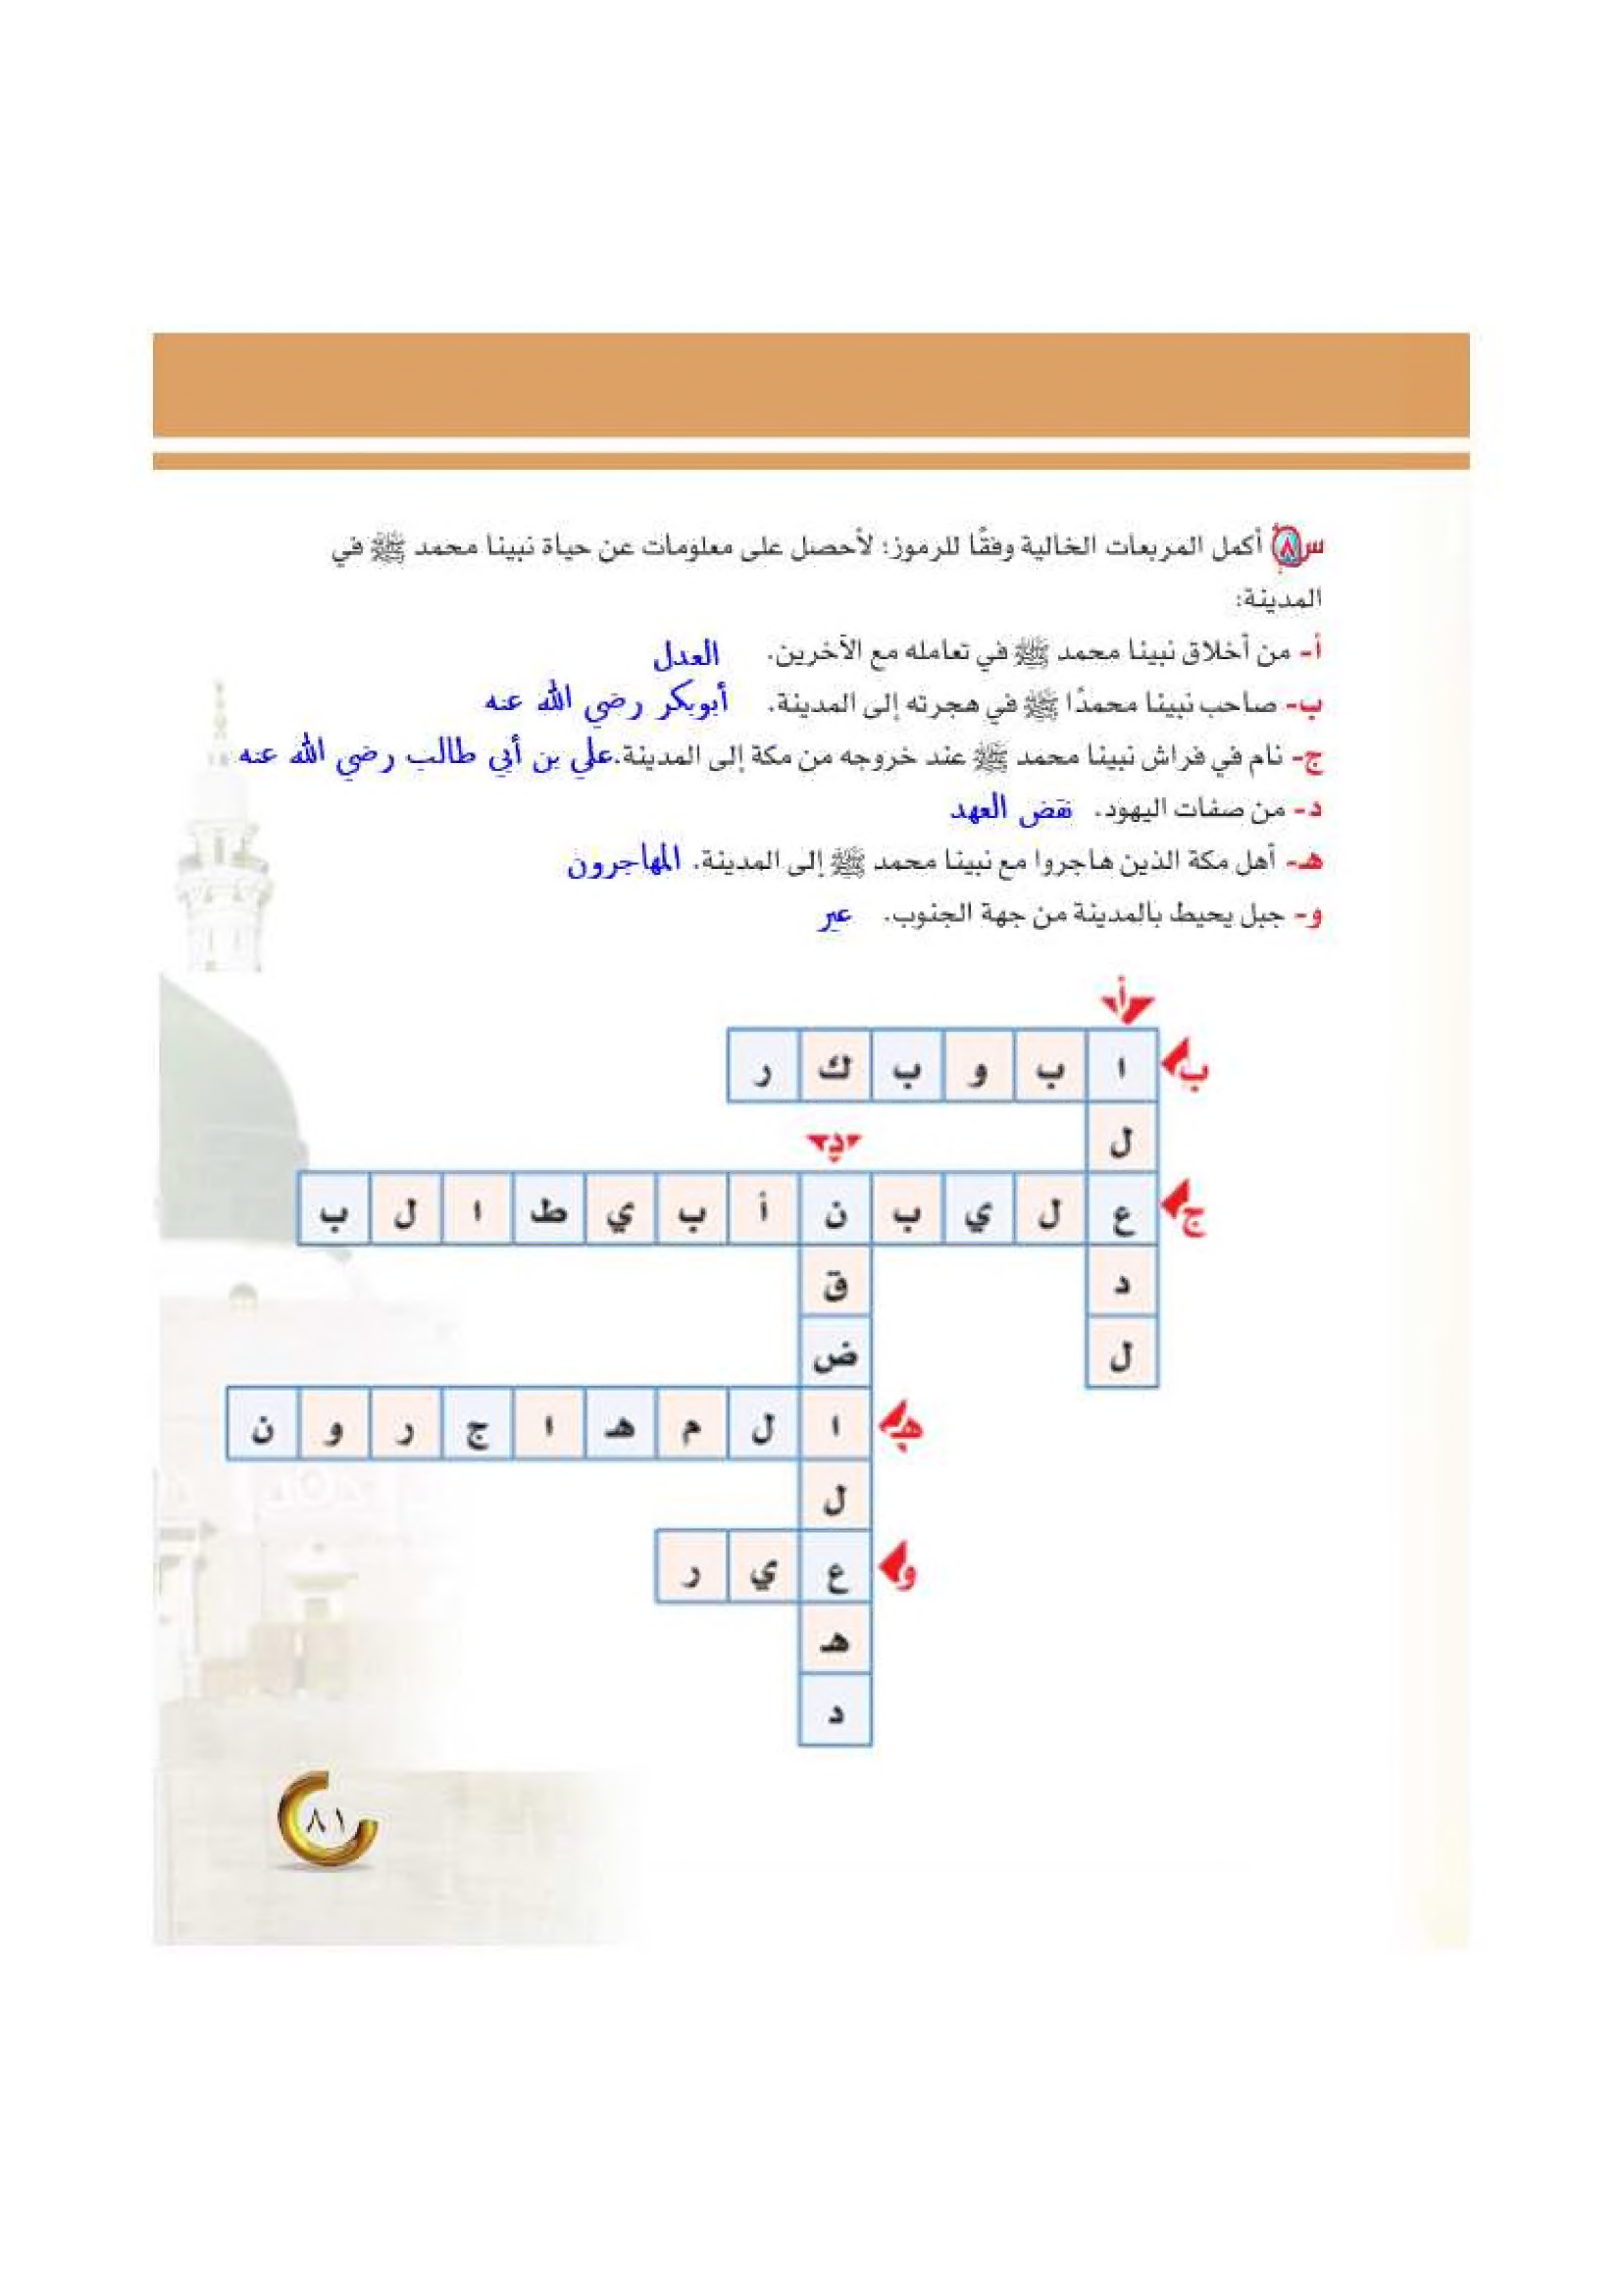 س٨ أكمل المربعات الخالية وفقًا للرموز؛ لأحصل على معلومات عن حياة نبينا محمد ﷺ في
المدينة:
أ- من أخلاق نبينا محمد ﷺ في تعامله مع الآخرين. العدل
ب- صاحب نبينا محمدًا ﷺ في هجرته إلى المدينة. أبوبكر رضي الله عنه
ج- نام في فراش نبينا محمد ﷺ عند خروجه من مكة إلى المدينة. علي بن أبي طالب رضي الله عنه
د- من صفات اليهود. نقض العهد
هـ- أهل مكة الذين هاجروا مع نبينا محمد ﷺ إلى المدينة. المهاجرون
و- جبل يحيط بالمدينة من جهة الجنوب. عير
أ
ب ا ب و ب ك ر
ل
د
ج ع ل ي ب ن أ ب ي ط ا ل ب
د ق
ل ض
هـ ا ل م هـ ا ج ر و ن
ل
و ع ي ر
هـ
د
٨١